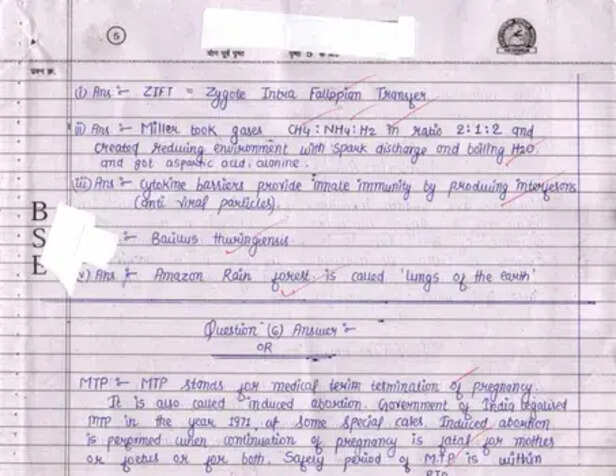 5
योग पूर्व पृष्ठ
पृष्ठ 5 के अंक
प्रश्न क्र.
(i) Ans :- ZIFT = Zygote Intra Fallopian Transfer
(ii) Ans :- Miller took gases CH4 : NH4 : H2 in ratio 2:1:2 and
created reducing environment with spark discharge and boiling H2O
and got aspartic acid, alanine.
(iii) Ans :- Cytokine barriers provide innate immunity by producing interferons
(anti viral particles).
B
S
E
:- Bacillus thuringiensis
v) Ans :- Amazon Rain forest is called 'lungs of the earth'
Question (6) Answer :-
OR
MTP :- MTP stands for medical term termination of pregnancy.
It is also called induced abortion. Government of India legalised
MTP in the year 1971, at some special cases. Induced abortion
is performed when continuation of pregnancy is fatal for mother
or foetus or for both. Safety period of MTP is within